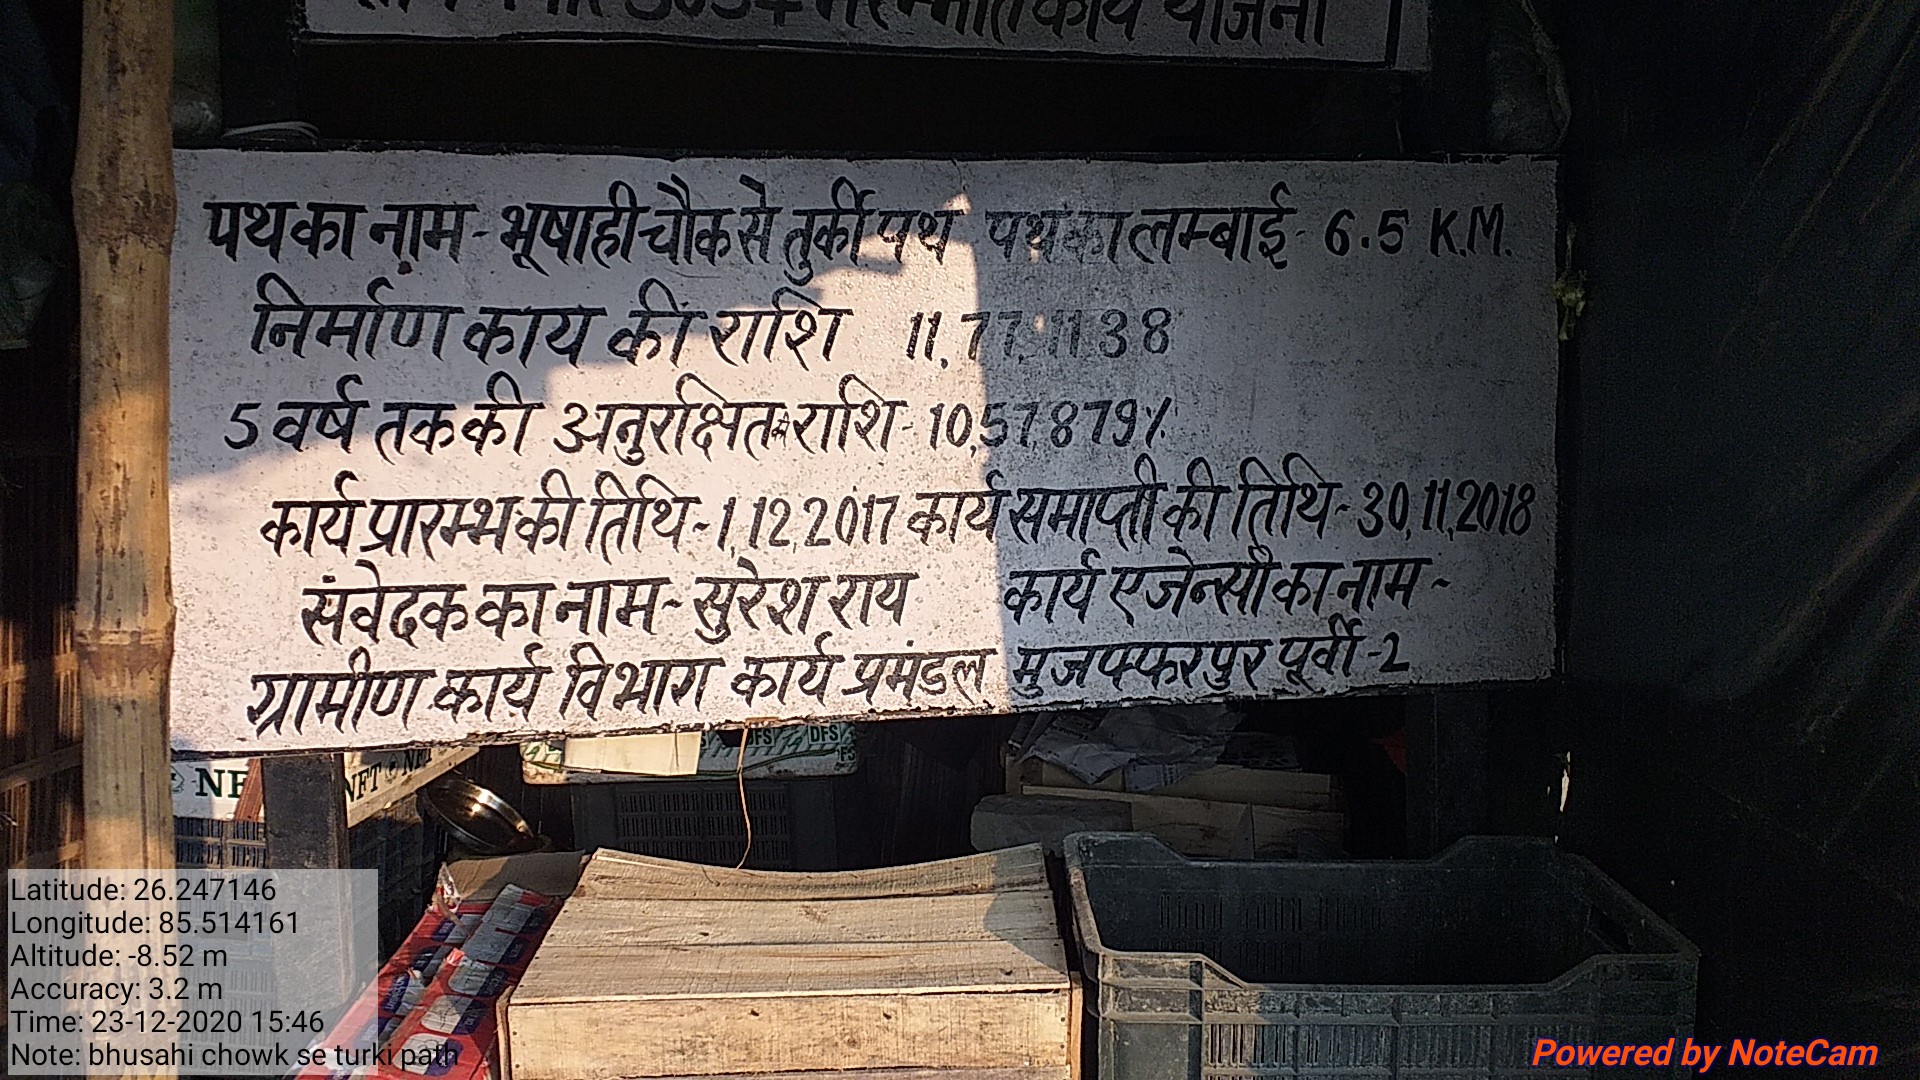 3054 मरम्मति कार्य योजना
पथ का नाम - भूषाही चौक से तुर्की पथ पथ का लम्बाई - 6.5 K.M.
निर्माण काय की राशि 11,77,1138
5 वर्ष तक की अनुरक्षित राशि - 10,57879%
कार्य प्रारम्भ की तिथि - 1,12,2017 कार्य समाप्ती की तिथि - 30,11,2018
संवेदक का नाम - सुरेश राय कार्य एजेन्सी का नाम -
ग्रामीण कार्य विभाग कार्य प्रमंडल मुजफ्फरपुर पूर्वी - 2
NFT NFT
DFS DFS
Latitude: 26.247146
Longitude: 85.514161
Altitude: -8.52 m
Accuracy: 3.2 m
Time: 23-12-2020 15:46
Note: bhusahi chowk se turki path
Powered by NoteCam